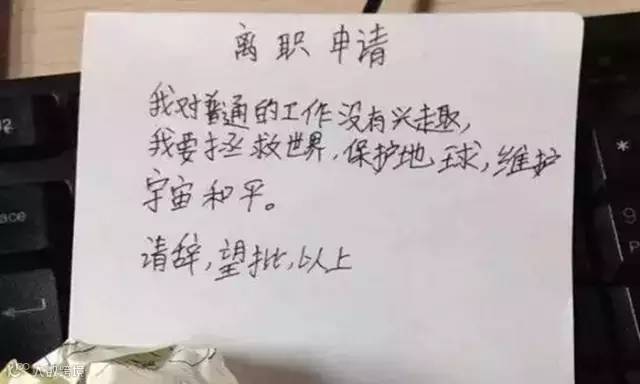 离职申请
我对普通的工作没有兴趣,
我要拯救世界,保护地球,维护
宇宙和平。
请辞,望批,以上
pace
9